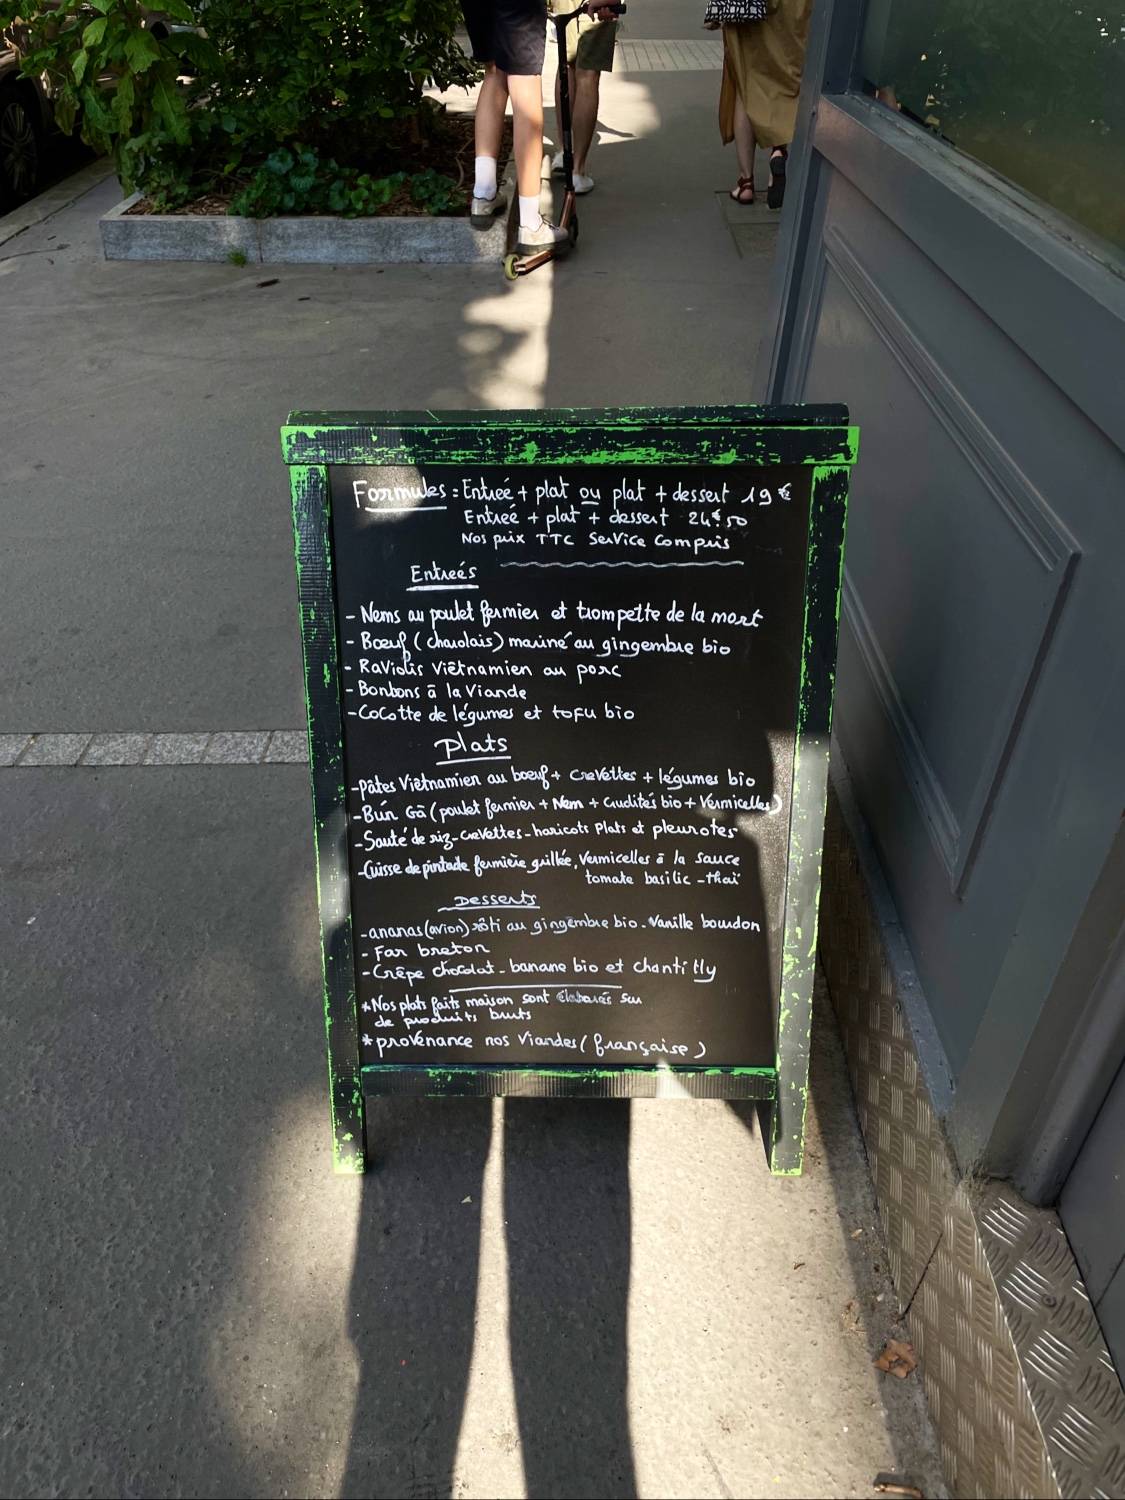 Formules : Entreé + plat ou plat + dessert 19 €
Entreé + plat + dessert 24€50
Nos prix TTC Service Compris
Entreés
- Nems au poulet fermier et trompette de la mort
- Bœuf ( charolais) mariné au gingembre bio
- Raviolis Viêtnamien au porc
- Bonbons à la Viande
- Cocotte de légumes et tofu bio
Plats
- pâtes Viêtnamien au bœuf + crevettes + légumes bio
- Bún Gà (poulet fermier + Nem + crudités bio + Vermicelles)
- Sauté de riz - crevettes - haricots Plats et pleurotes
- Cuisse de pintade fermière grillée, Vermicelles à la sauce
tomate basilic - thaï
Desserts
- ananas (avion) rôti au gingembre bio - Vanille bourdon
- Far breton
- Crêpe chocolat - banane bio et chantilly
* Nos plats faits maison sont élaborés sur
de produits bruts
* provenance nos Viandes ( française )